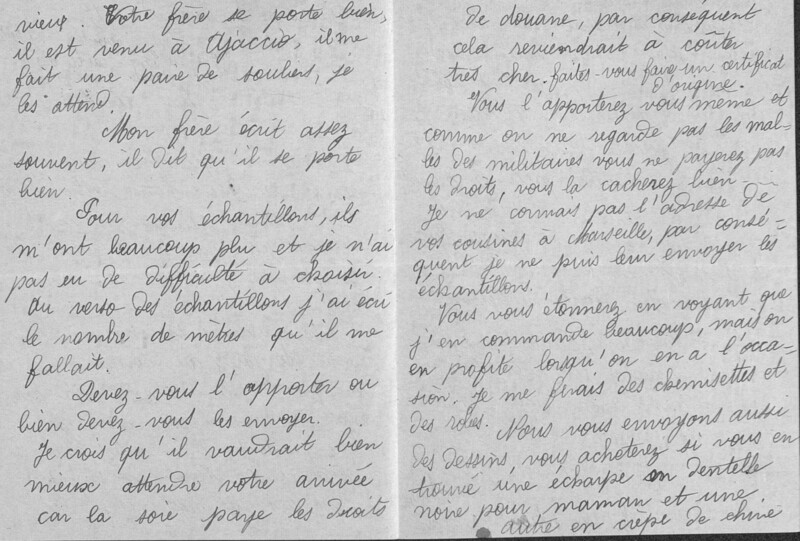 vieux. Votre frère se porte bien,
il est venu à Ajaccio, il me
fait une paire de souliers, je
les attend.
Mon frère écrit assez
souvent, il dit qu'il se porte
bien.
Pour vos échantillons, ils
m'ont beaucoup plu et je n'ai
pas eu de difficulté à choisir.
Au verso des échantillons j'ai écri
le nombre de mètres qu'il me
fallait.
Devez-vous l'apporter ou
bien devez-vous les envoyer.
Je crois qu'il vaudrait bien
mieux attendre votre arrivée
car la soie paye les droits
de douane, par conséquent
cela reviendrait à coûter
très cher. faites-vous faire un certificat
d'origine.
Vous l'apporterez vous même et
comme on ne regarde pas les mal-
les des militaires vous ne payerez pas
les droits, vous la cacherez bien
Je ne connais pas l'adresse de
vos cousines à Marseille, par consé-
quent je ne puis leur envoyer les
échantillons.
Vous vous étonnerez en voyant que
j'en commande beaucoup, mais on
en profite lorsqu'on en a l'occa-
sion. Je me ferais des chemisettes et
des robes. Nous vous envoyons aussi
des dessins, vous acheterez si vous en
trouvé une écharpe en dentelle
noire pour maman et une
autre en crêpe de chine